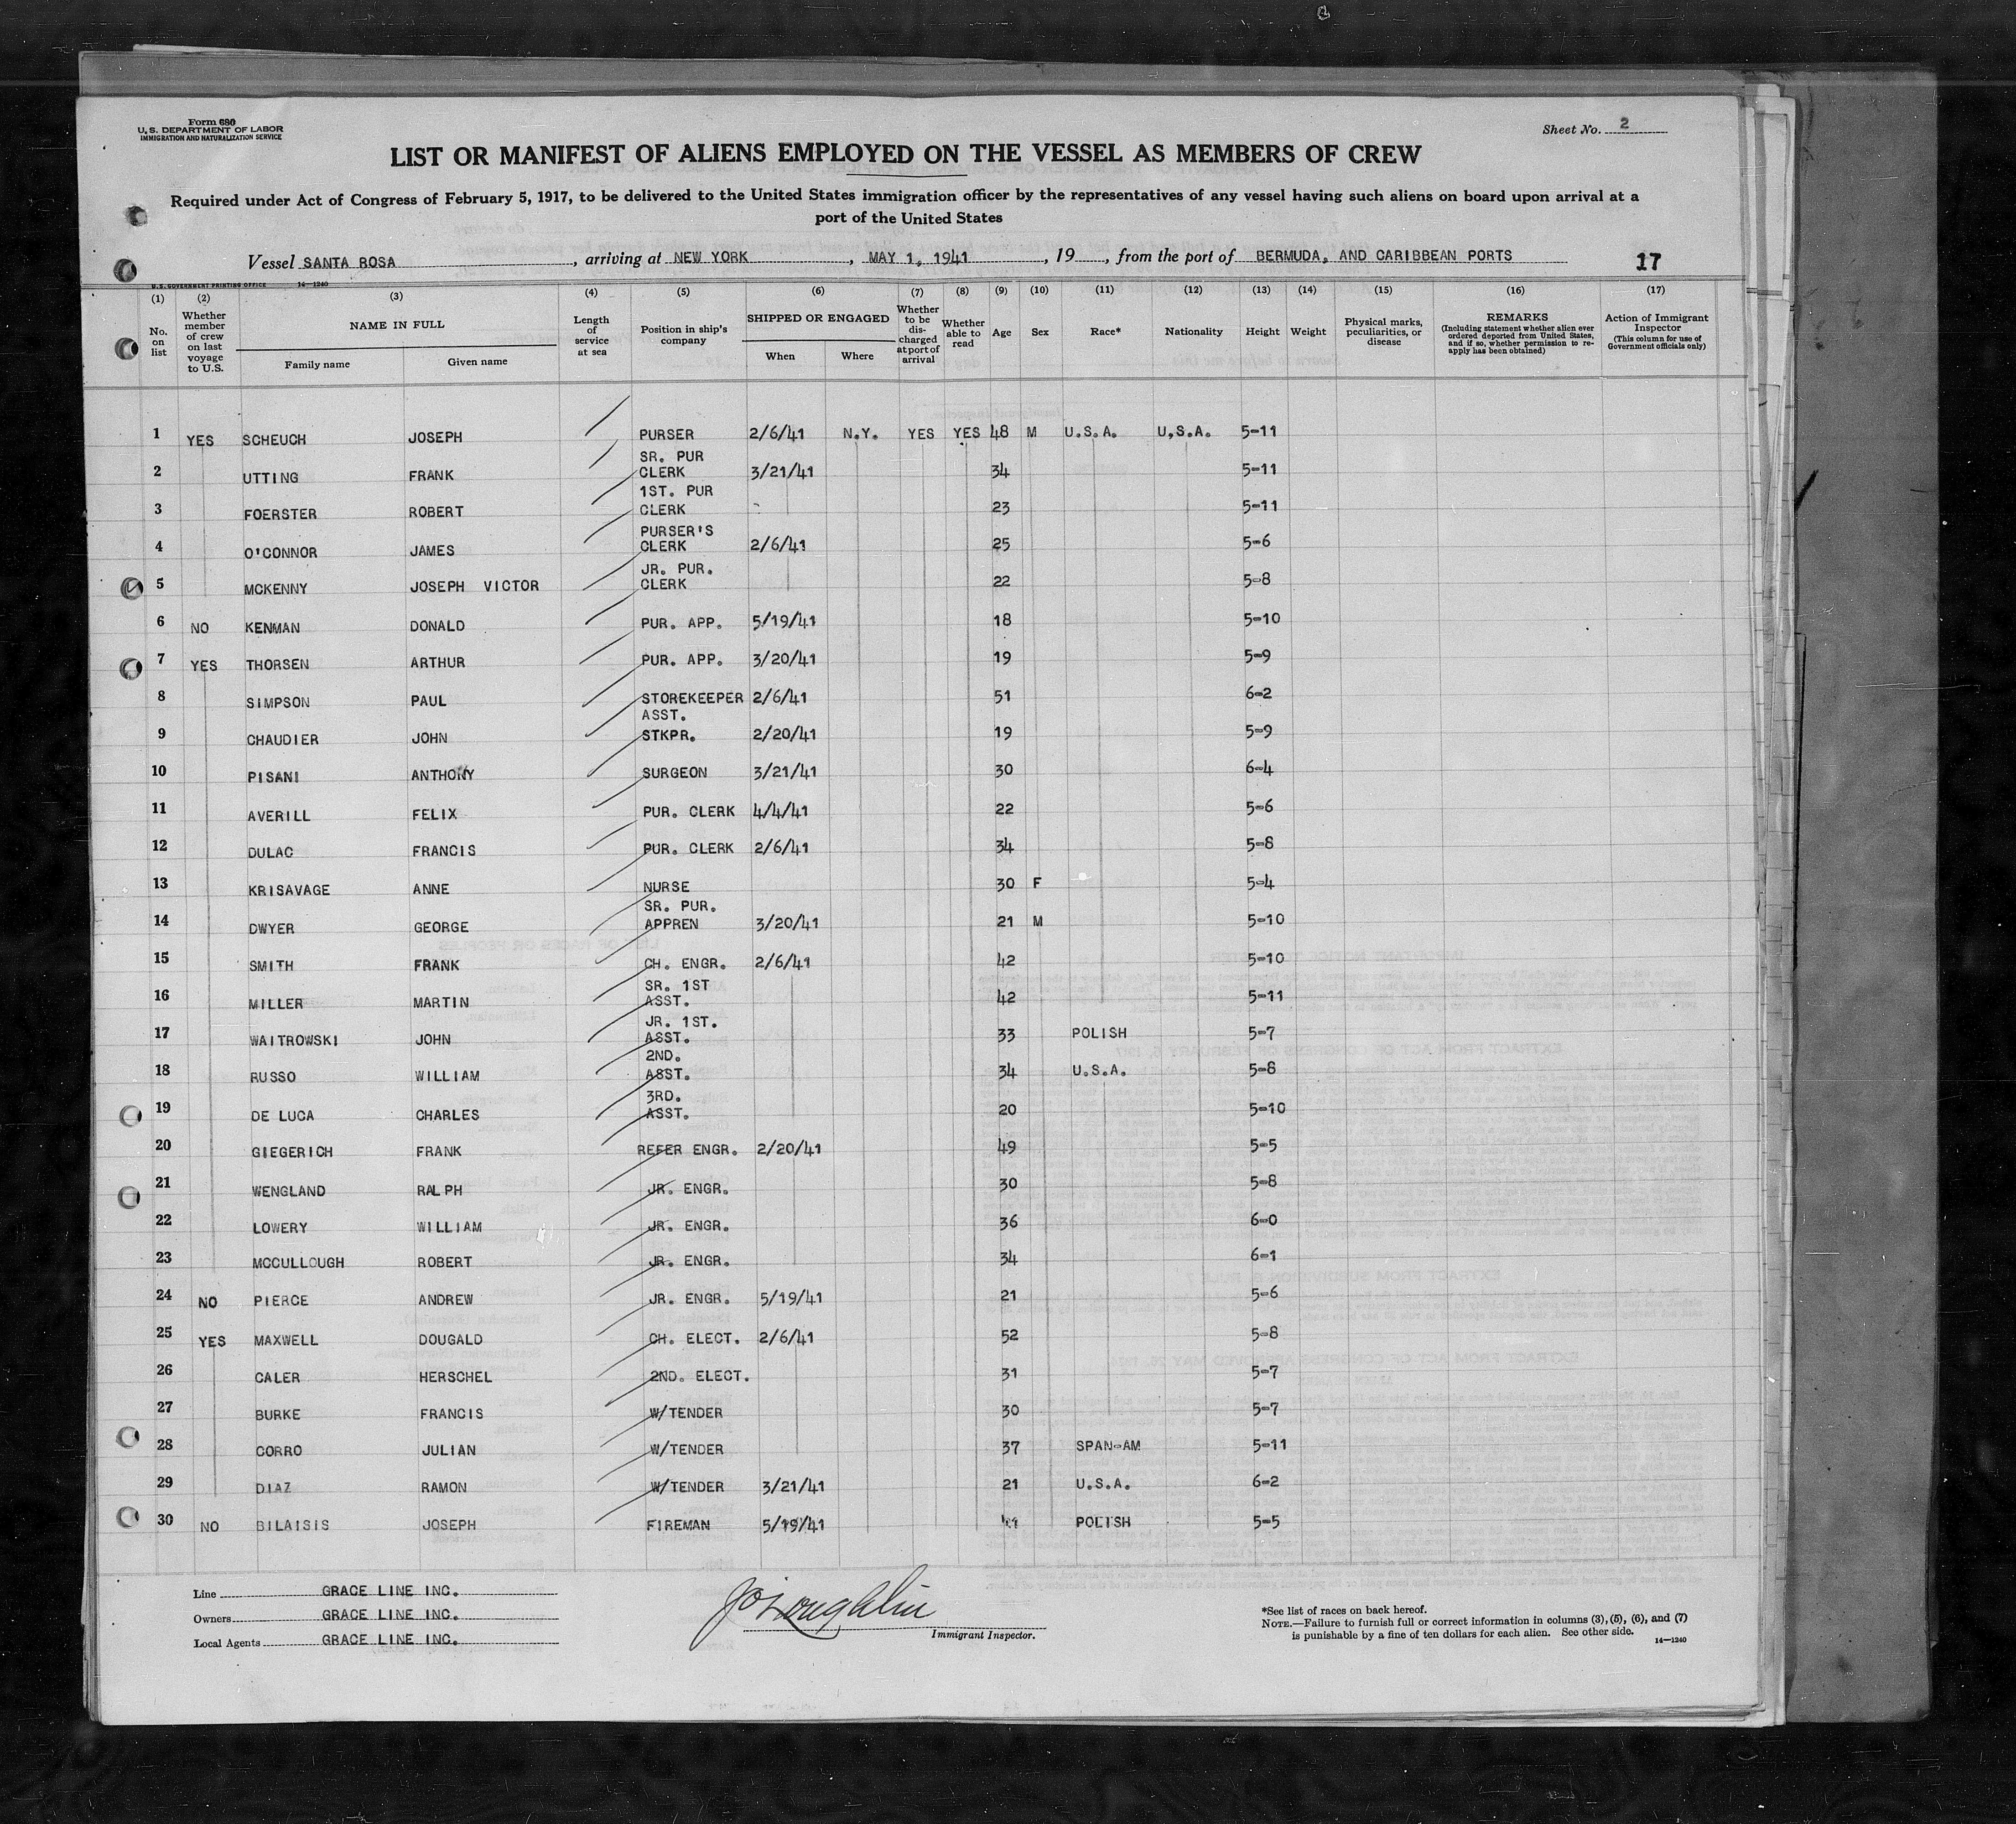 Form 680
U. S. DEPARTMENT OF LABOR
IMMIGRATION AND NATURALIZATION SERVICE
Sheet No. 2
LIST OR MANIFEST OF ALIENS EMPLOYED ON THE VESSEL AS MEMBERS OF CREW
Required under Act of Congress of February 5, 1917, to be delivered to the United States immigration officer by the representatives of any vessel having such aliens on board upon arrival at a
port of the United States
Vessel SANTA ROSA, arriving at NEW YORK, MAY 1, 1941, 19, from the port of BERMUDA, AND CARIBBEAN PORTS 17
U.S. GOVERNMENT PRINTING OFFICE 14—1240
(1) (2) (3) (4) (5) (6) (7) (8) (9) (10) (11) (12) (13) (14) (15) (16) (17)
No. on list
Whether member of crew on last voyage to U.S.
NAME IN FULL
Family name Given name
Length of service at sea
Position in ship's company
SHIPPED OR ENGAGED
When Where
Whether to be discharged at port of arrival
Whether able to read
Age
Sex
Race*
Nationality
Height
Weight
Physical marks, peculiarities, or disease
REMARKS
(Including statement whether alien ever ordered deported from United States, and if so, whether permission to reapply has been obtained)
Action of Immigrant Inspector
(This column for use of Government officials only)
1 YES SCHEUCH JOSEPH PURSER 2/6/41 N.Y. YES YES 48 M U.S.A. U.S.A. 5-11
2 UTTING FRANK SR. PUR CLERK 3/21/41 34 5-11
3 FOERSTER ROBERT 1ST. PUR CLERK 23 5-11
4 O'CONNOR JAMES PURSER'S CLERK 2/6/41 25 5-6
5 MCKENNY JOSEPH VICTOR JR. PUR. CLERK 22 5-8
6 NO KENMAN DONALD PUR. APP. 5/19/41 18 5-10
7 YES THORSEN ARTHUR PUR. APP. 3/20/41 19 5-9
8 SIMPSON PAUL STOREKEEPER 2/6/41 51 6-2
9 CHAUDIER JOHN ASST. STKPR. 2/20/41 19 5-9
10 PISANI ANTHONY SURGEON 3/21/41 30 6-4
11 AVERILL FELIX PUR. CLERK 4/4/41 22 5-6
12 DULAC FRANCIS PUR. CLERK 2/6/41 34 5-8
13 KRISAVAGE ANNE NURSE 30 F 5-4
14 DWYER GEORGE SR. PUR. APPREN 3/20/41 21 M 5-10
15 SMITH FRANK CH. ENGR. 2/6/41 42 5-10
16 MILLER MARTIN SR. 1ST ASST. 42 5-11
17 WAITROWSKI JOHN JR. 1ST. ASST. 33 POLISH 5-7
18 RUSSO WILLIAM 2ND. ASST. 34 U.S.A. 5-8
19 DE LUCA CHARLES 3RD. ASST. 20 5-10
20 GIEGERICH FRANK REFER ENGR. 2/20/41 49 5-5
21 WENGLAND RALPH JR. ENGR. 30 5-8
22 LOWERY WILLIAM JR. ENGR. 36 6-0
23 MCCULLOUGH ROBERT JR. ENGR. 34 6-1
24 NO PIERCE ANDREW JR. ENGR. 5/19/41 21 5-6
25 YES MAXWELL DOUGALD CH. ELECT. 2/6/41 52 5-8
26 CALER HERSCHEL 2ND. ELECT. 31 5-7
27 BURKE FRANCIS W/TENDER 30 5-7
28 CORRO JULIAN W/TENDER 37 SPAN-AM 5-11
29 DIAZ RAMON W/TENDER 3/21/41 21 U.S.A. 6-2
30 NO BILAISIS JOSEPH FIREMAN 5/19/41 POLISH 5-5
Line GRACE LINE INC.
Owners GRACE LINE INC.
Local Agents GRACE LINE INC.
Immigrant Inspector.
*See list of races on back hereof.
NOTE.—Failure to furnish full or correct information in columns (3), (5), (6), and (7)
is punishable by a fine of ten dollars for each alien. See other side.
14—1240